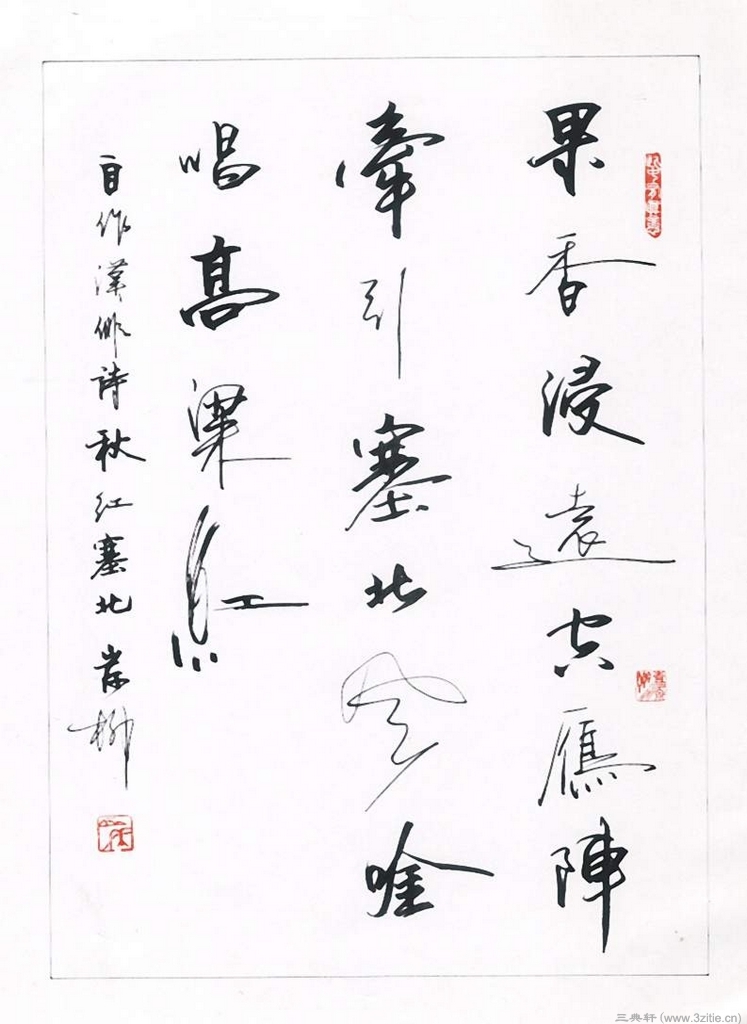 果香浸遠空雁陣
牽引塞北風唫
唱高粱紅
自作漢俳詩秋紅塞北岸柳
三典轩(www.3zitie.cn)